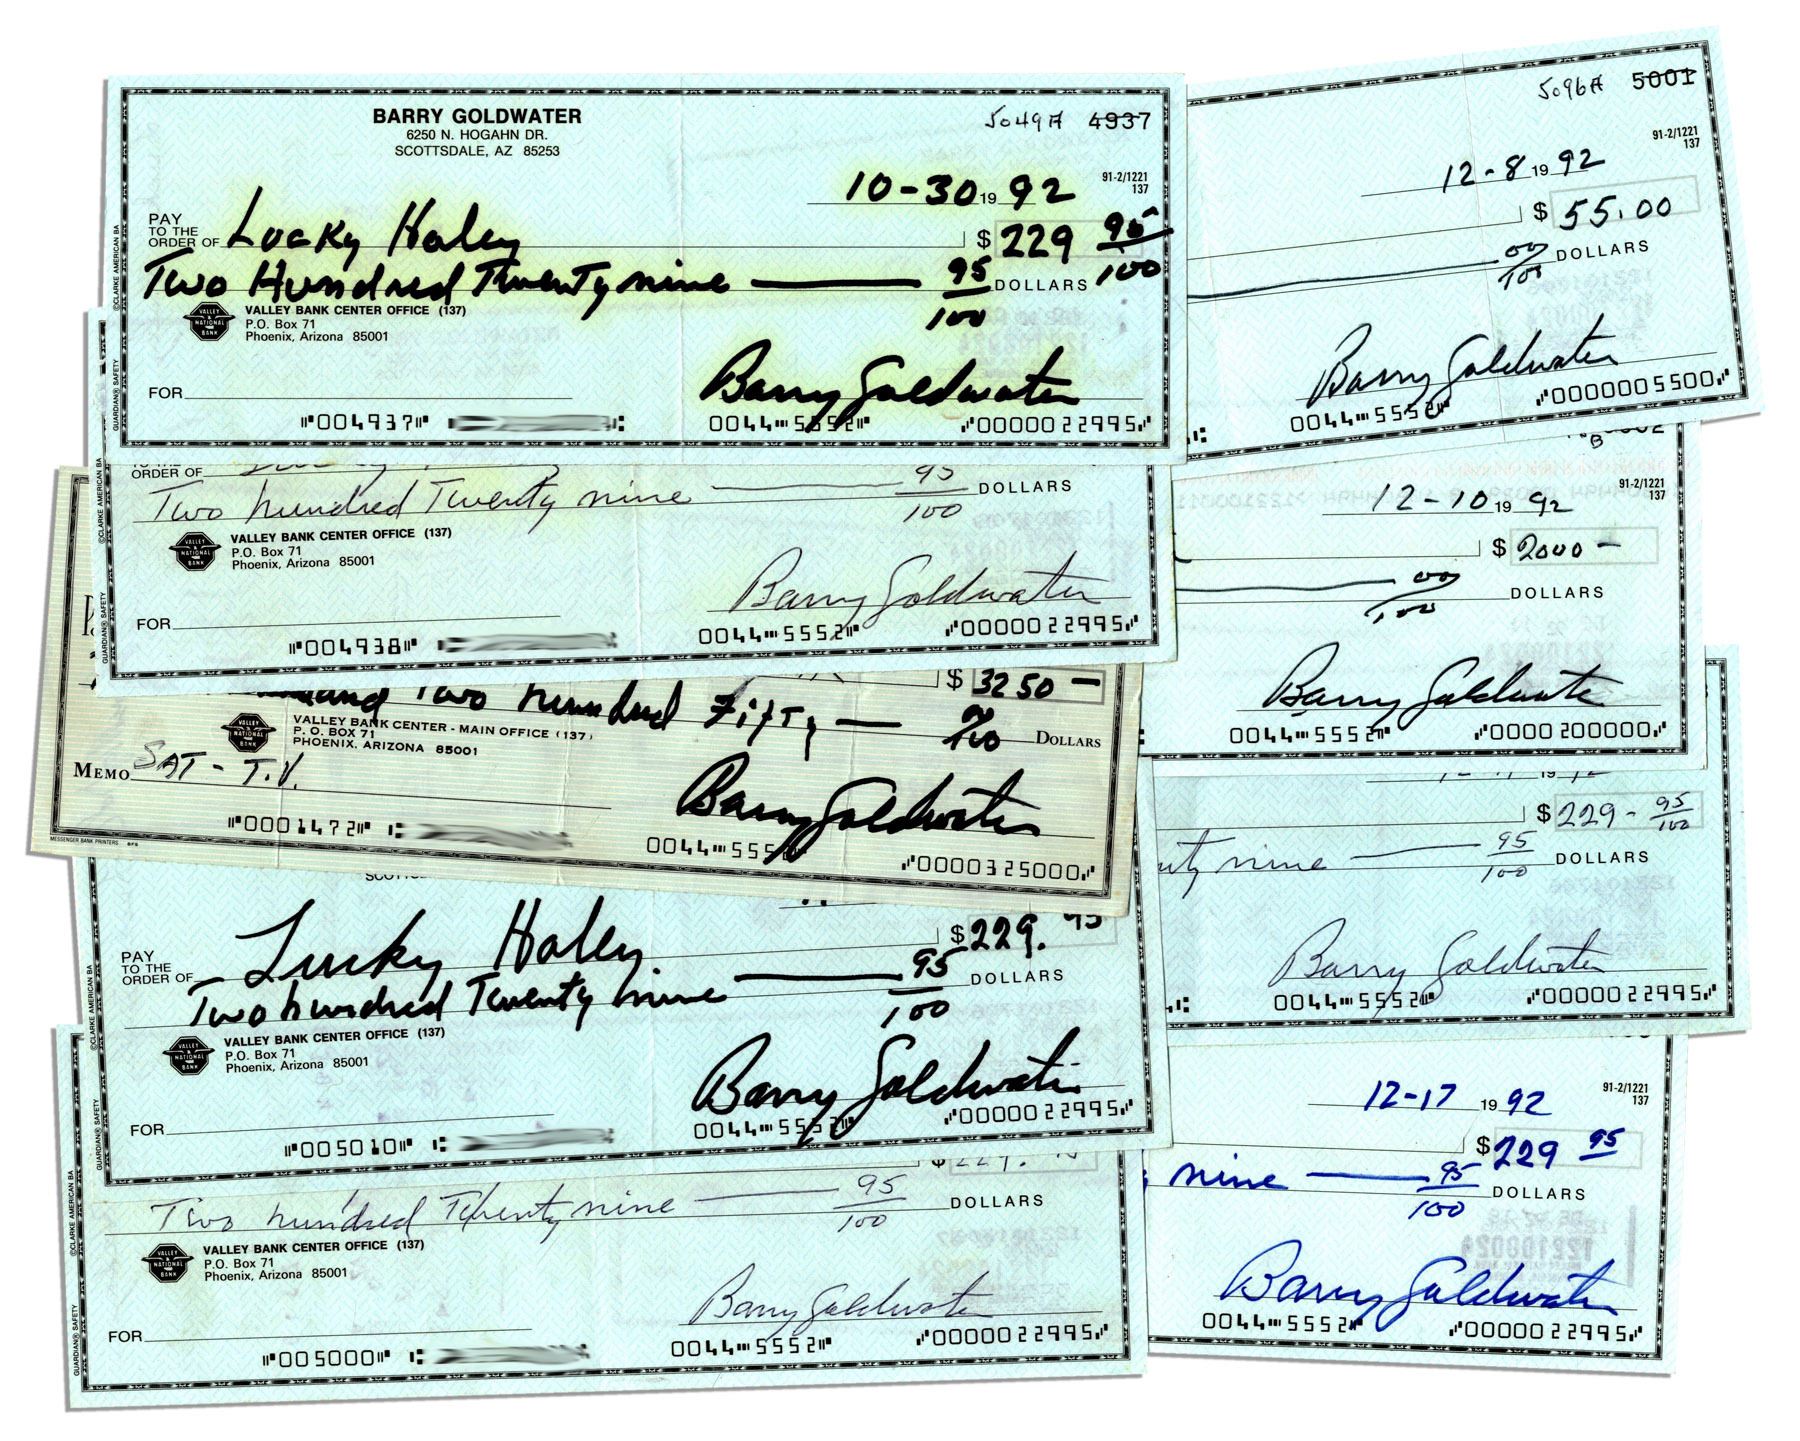 BARRY GOLDWATER
6250 N. HOGAHN DR.
SCOTTSDALE, AZ 85253
5049A 4937
91-2/1221
137
10-30 19 92
PAY
TO THE
ORDER OF Lucky Haley $ 229 95/100
Two Hundred Twenty nine 95/100 DOLLARS
VALLEY BANK CENTER OFFICE (137)
P.O. Box 71
Phoenix, Arizona 85001
VALLEY
NATIONAL
BANK
FOR
Barry Goldwater
⑈004937⑈ 0044⑈5552⑈ ⑈0000022995⑈
©CLARKE AMERICAN BA
GUARDIAN® SAFETY
ORDER OF
Two hundred Twenty nine 95/100 DOLLARS
VALLEY BANK CENTER OFFICE (137)
P.O. Box 71
Phoenix, Arizona 85001
VALLEY
NATIONAL
BANK
FOR
Barry Goldwater
⑈004938⑈ 0044⑈5552⑈ ⑈0000022995⑈
©CLARKE AMERICAN BA
GUARDIAN® SAFETY
$ 3250 —
Two hundred Fifty — 00/100 DOLLARS
VALLEY BANK CENTER - MAIN OFFICE (137)
P. O. BOX 71
PHOENIX, ARIZONA 85001
VALLEY
NATIONAL
BANK
MEMO SAT - T.V.
Barry Goldwater
⑈0001472⑈ 0044⑈5552 ⑈0000325000⑈
MESSENGER BANK PRINTERS
PAY
TO THE
ORDER OF Lucky Haley $ 229. 95
Two hundred Twenty nine 95/100 DOLLARS
VALLEY BANK CENTER OFFICE (137)
P.O. Box 71
Phoenix, Arizona 85001
VALLEY
NATIONAL
BANK
FOR
Barry Goldwater
⑈005010⑈ 0044⑈5552 ⑈0000022995⑈
©CLARKE AMERICAN BA
GUARDIAN® SAFETY
Two hundred Twenty nine 95/100 DOLLARS
VALLEY BANK CENTER OFFICE (137)
P.O. Box 71
Phoenix, Arizona 85001
VALLEY
NATIONAL
BANK
FOR
Barry Goldwater
⑈005000⑈ 0044⑈5552⑈ ⑈0000022995⑈
©CLARKE AMERICAN BA
GUARDIAN® SAFETY
5096A 5001
91-2/1221
137
12-8 19 92
$ 55.00
00/100 DOLLARS
Barry Goldwater
0044⑈5552⑈ ⑈0000005500⑈
91-2/1221
137
12-10 19 92
$ 2000 —
00/100 DOLLARS
Barry Goldwater
0044⑈5552⑈ ⑈0000200000⑈
$ 229 - 95/100
nine 95/100 DOLLARS
Barry Goldwater
0044⑈5552⑈ ⑈0000022995⑈
91-2/1221
137
12-17 19 92
$ 229 95
nine 95/100 DOLLARS
Barry Goldwater
0044⑈5552⑈ ⑈0000022995⑈